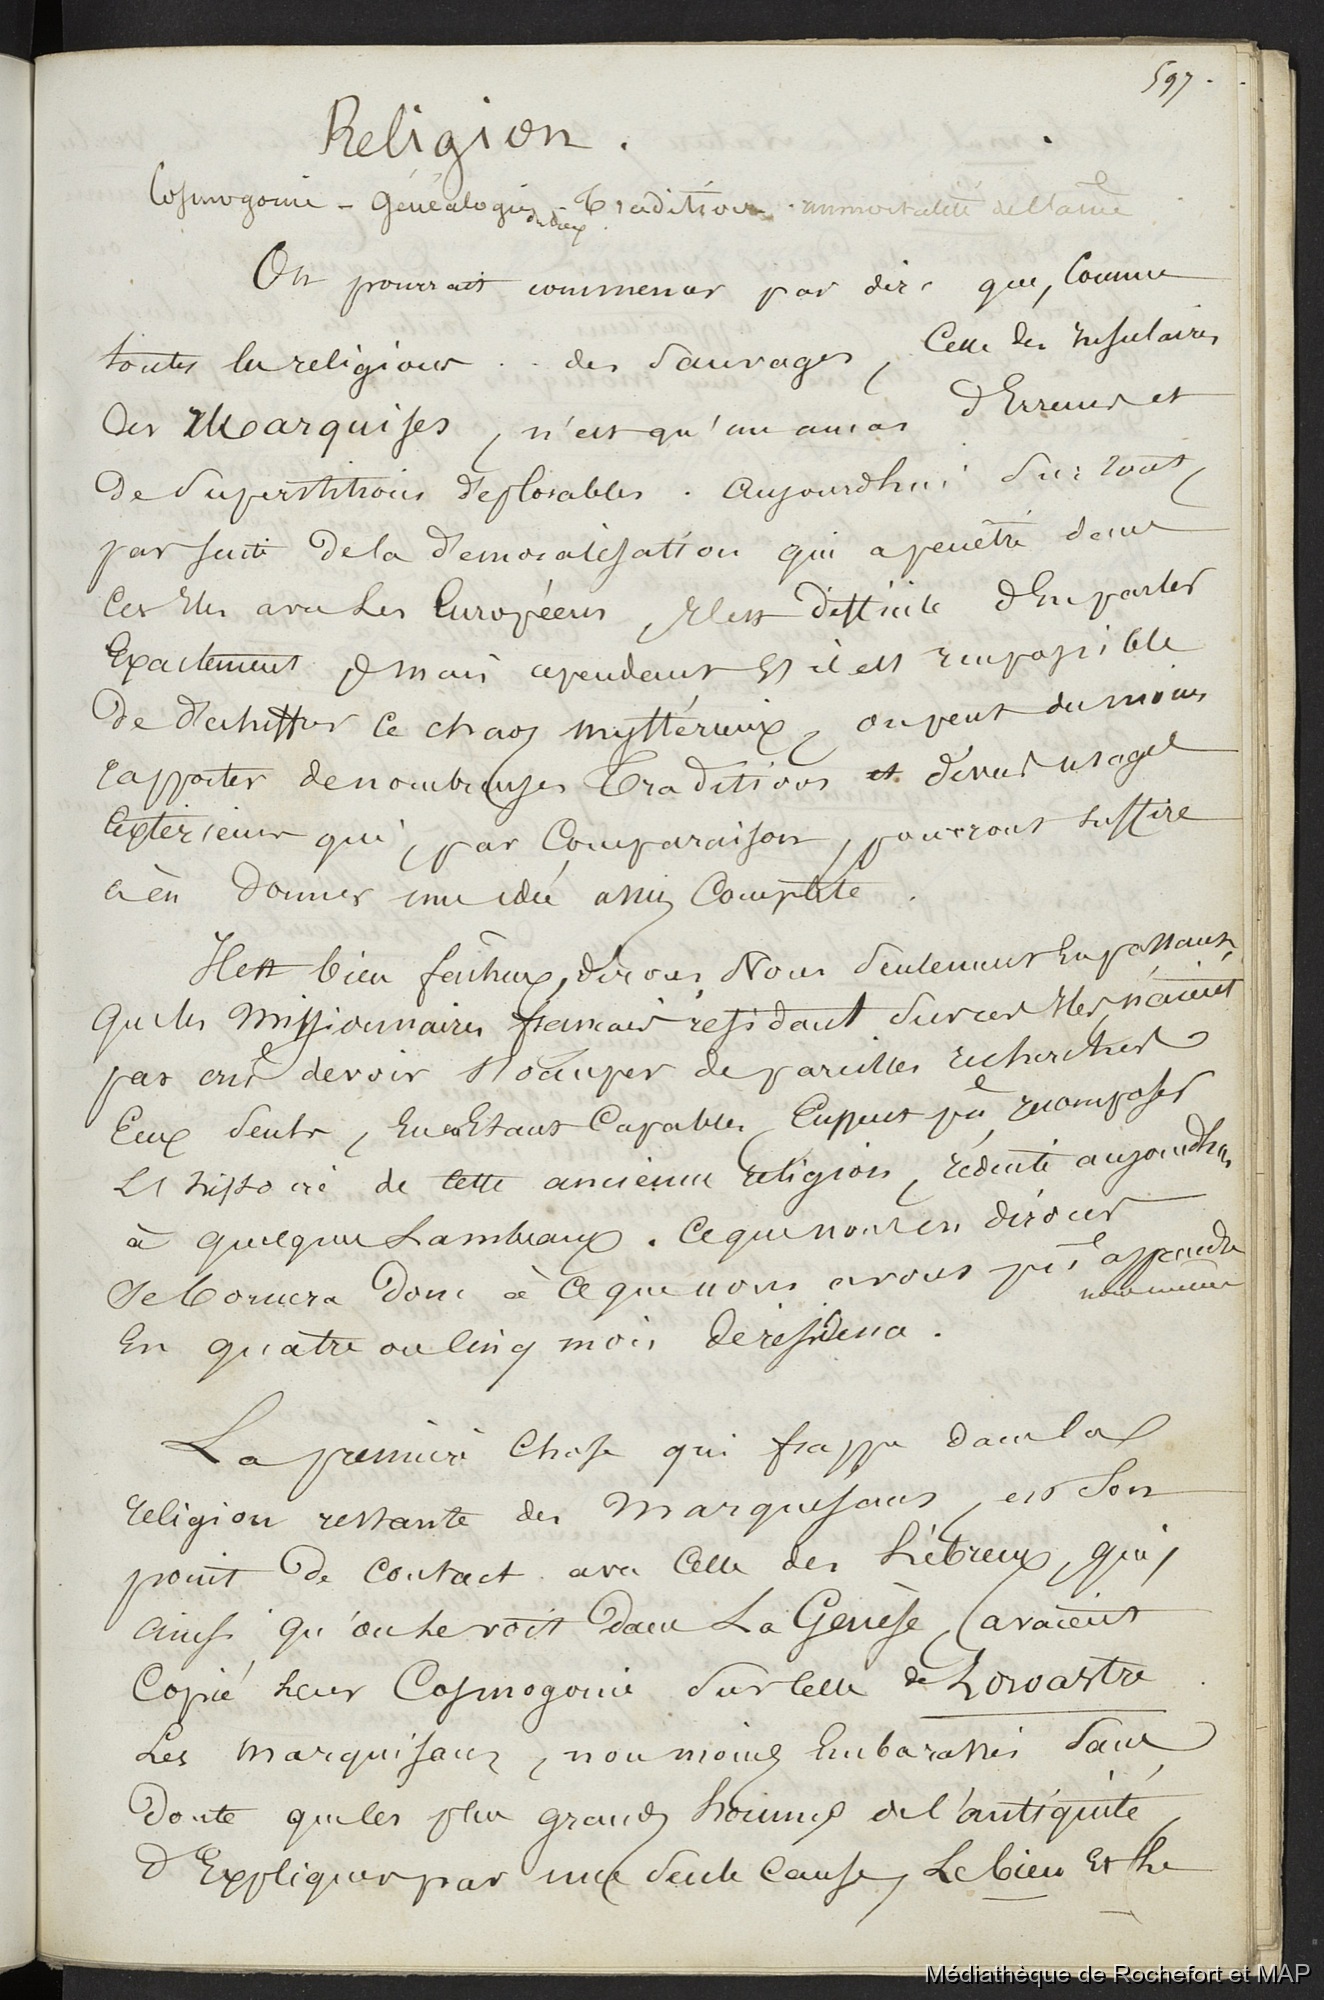 597.
Religion.
Cosmogonie - Généalogie - Tradition - immortalité de l'âme
des dieux
On pourrait commencer par dire que, Comme
toutes les religions .. des Sauvages, Celle des Insulaires
des Marquises, n'est qu'un amas d'Erreurs et
de Superstitions déplorables. Aujourdhui Surtout,
par suite de la démoralisation qui a pénétré dans
ces Iles avec les Européens, Il est difficile d'En parler
Exactement, mais cependant S'il est Impossible
de déchiffrer ce chaos mystérieux, on peut du moins
rapporter de nombreuses Traditions et divers usages
Extérieurs qui, par Comparaison, pourront suffire
à en donner une idée assez Complète.
Il est bien fâcheux, dirons Nous Seulement En passant,
que les Missionnaires français résidant sur ces Iles, n'aient
pas crû devoir s'occuper de pareilles recherches
Eux Seuls, En Etant Capables, Eussent pû recomposer
L'histoire de cette ancienne religion, réduite aujourdhui
à quelques Lambeaux. Ce que nous en dirons
se bornera donc à ce que nous avons pû apprendre
nous même
En quatre ou Cinq mois de résidence.
La première Chose qui frappe dans la
religion restante des Marquisans, est Son
point de Contact avec Celle des hébreux, qui,
ainsi qu'on le voit dans La Genèse, avaient
Copié leur Cosmogonie sur Celle de Zoroastre
Les Marquisans, non moins Embarassés Sans
doute que les plus grands hommes de l'antiquité,
d'Expliquer par une Seule Cause, Le bien Et le
Médiathèque de Rochefort et MAP